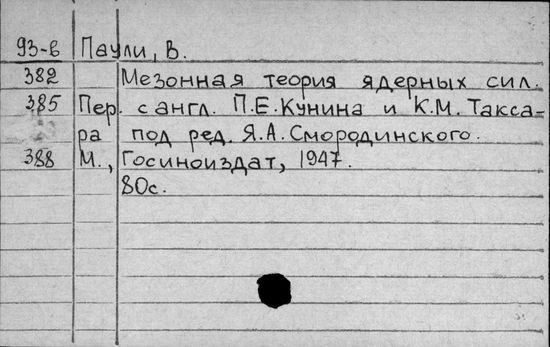 93-в Паули, В.
382 Мезонная теория ядерных сил.
385 Пер. с англ. П.Е.Кунина и К.М.Такса-
ра под ред. Я.А.Смородинского.
388 М., Госиноиздат, 1947.
80с.